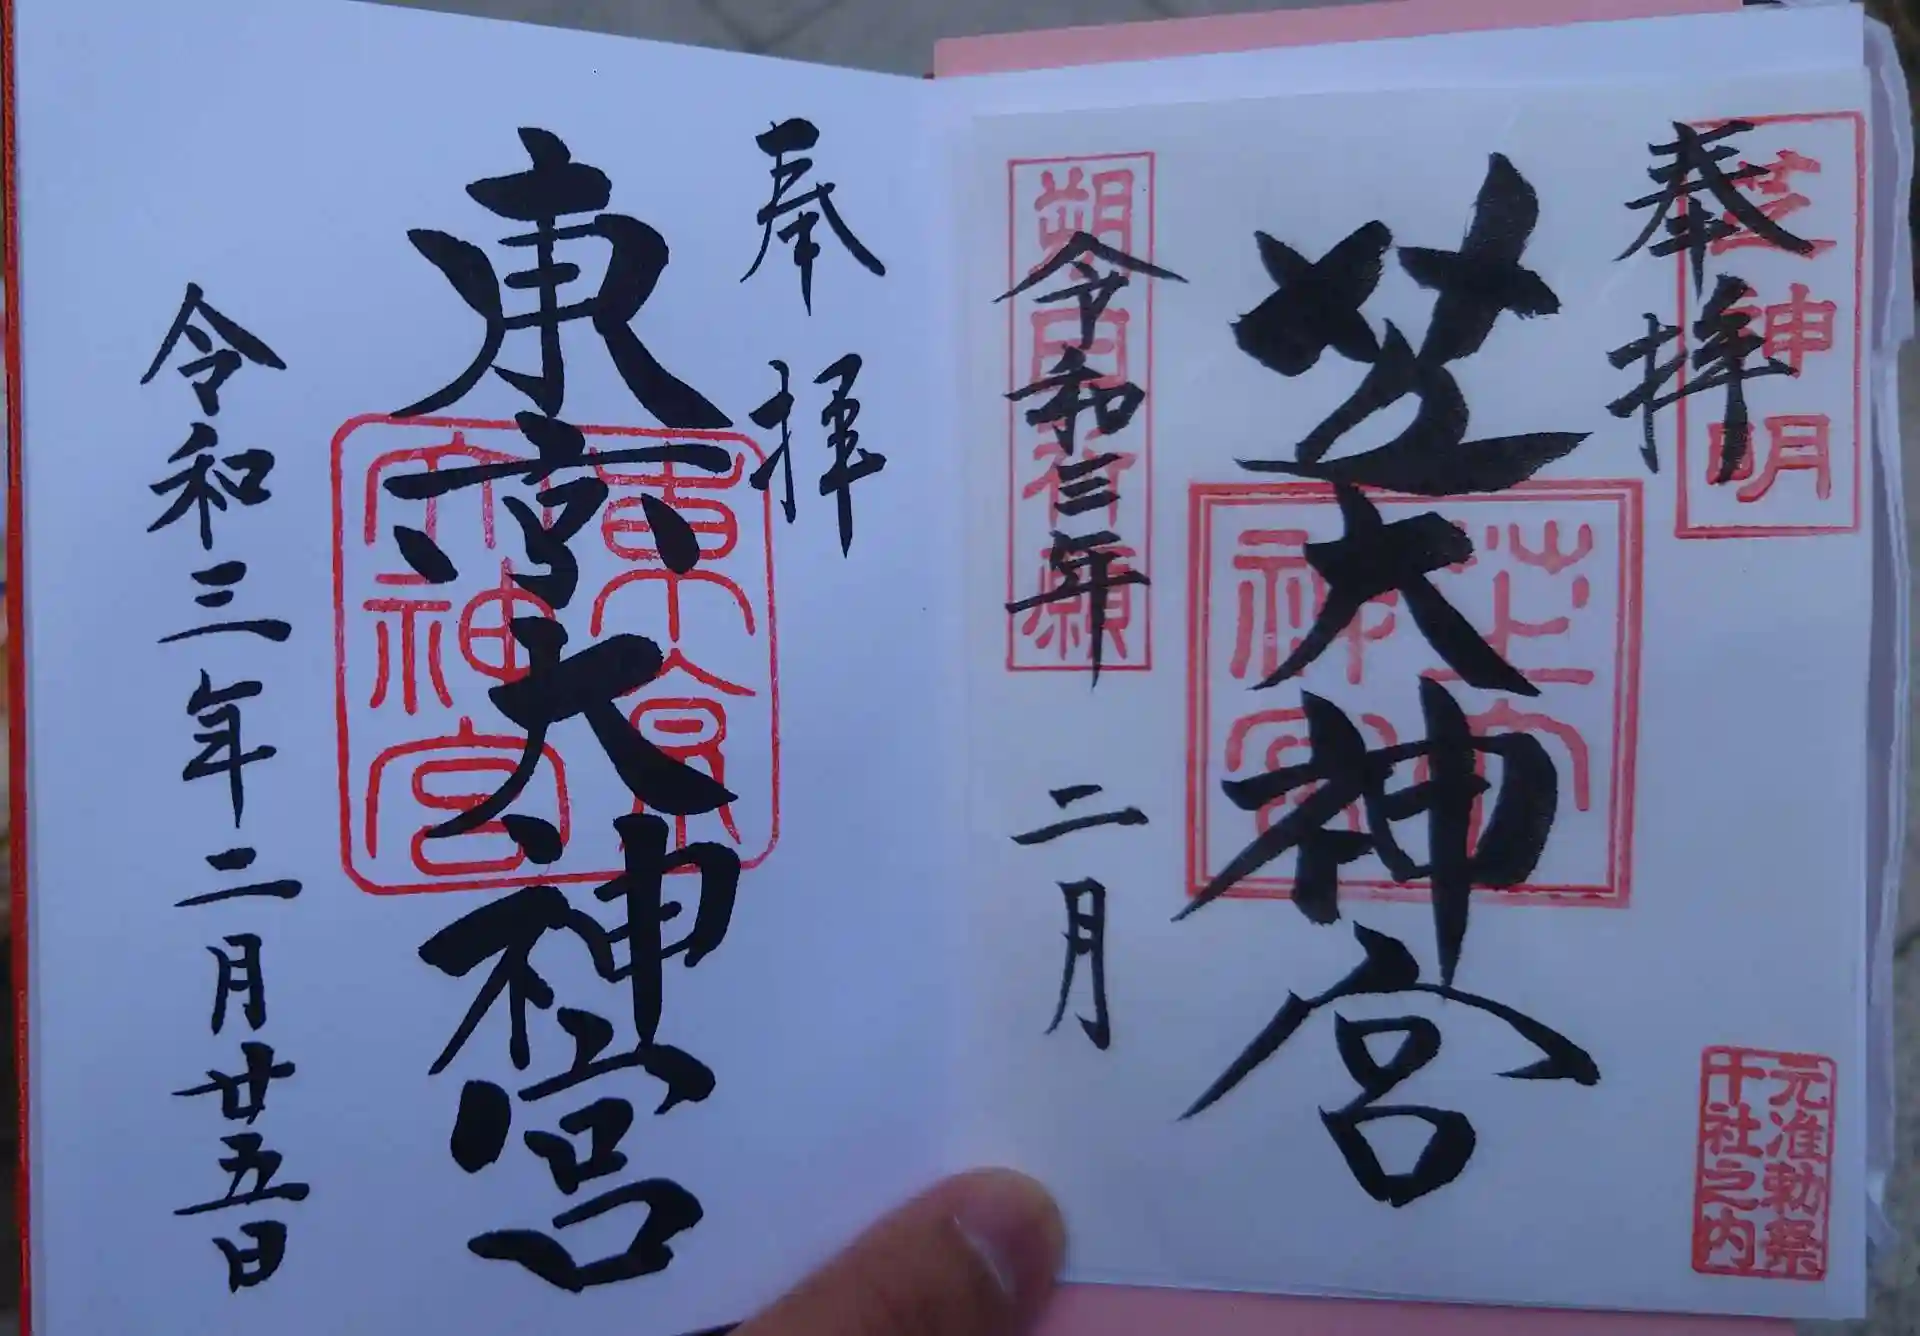 奉拝
芝神明
芝大神宮
芝大神宮
令和三年 二月
朔日祈願
元准勅祭
十社之内
奉拝
東京大神宮
東京大神宮
令和三年二月廿五日